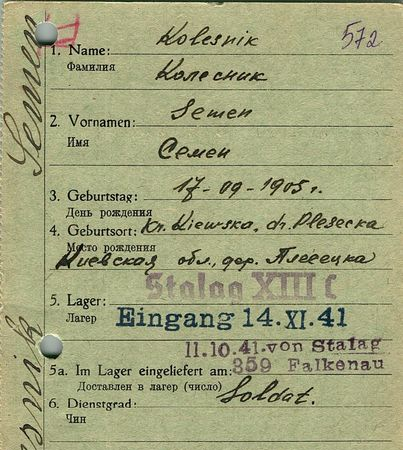 572
Kolesnik
1. Name:
Фамилия
Колесник
Semen
2. Vornamen:
Имя
Семен
3. Geburtstag: 17-09-1905 г.
День рождения
4. Geburtsort: Kr. Kiewska, dr. Plesecka
Место рождения
Киевская обл., дер. Плесецка
Stalag XIII C
5. Lager:
Лагер
Eingang 14. XI. 41
11.10.41. von Stalag
359 Falkenau
5a. Im Lager eingeliefert am:
Доставлен в лагер (число)
6. Dienstgrad: Soldat.
Чин
Semen